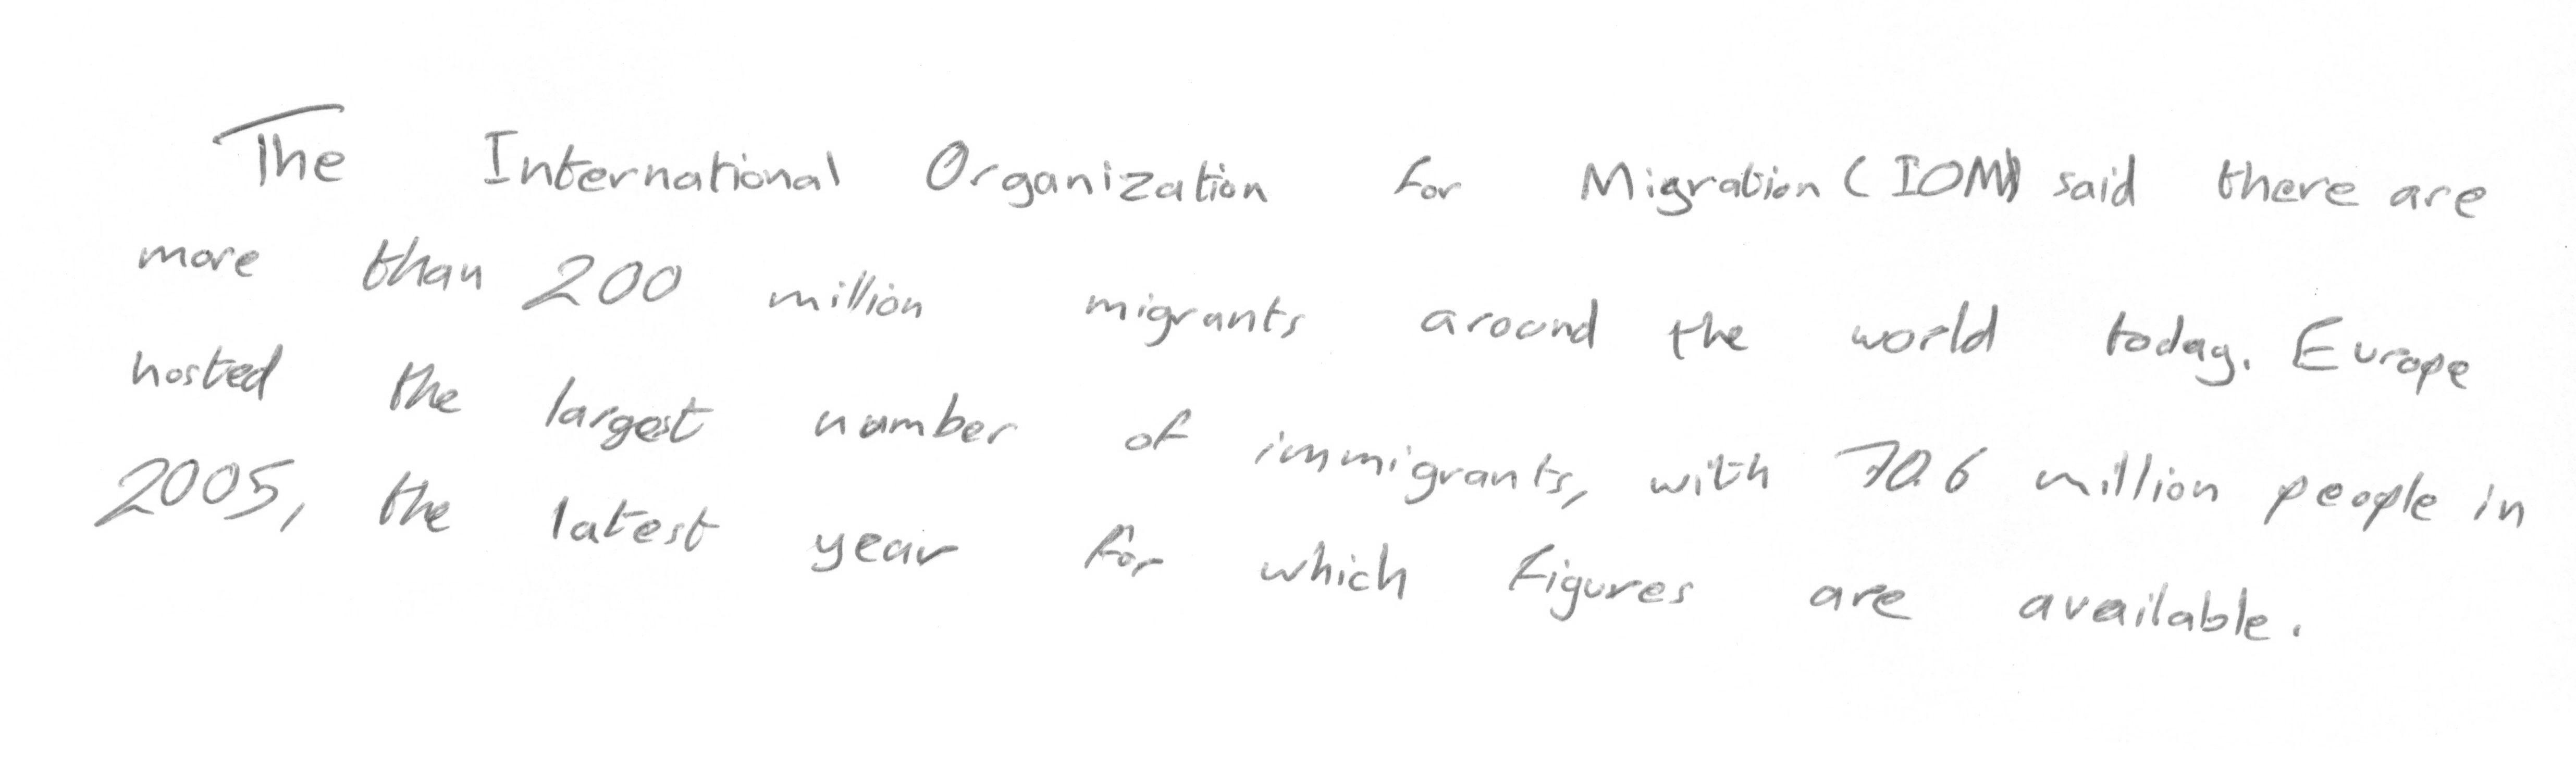 The International Organization for Migration (IOM) said there are
more than 200 million migrants around the world today. Europe
hosted the largest number of immigrants, with 70.6 million people in
2005, the latest year for which figures are available.